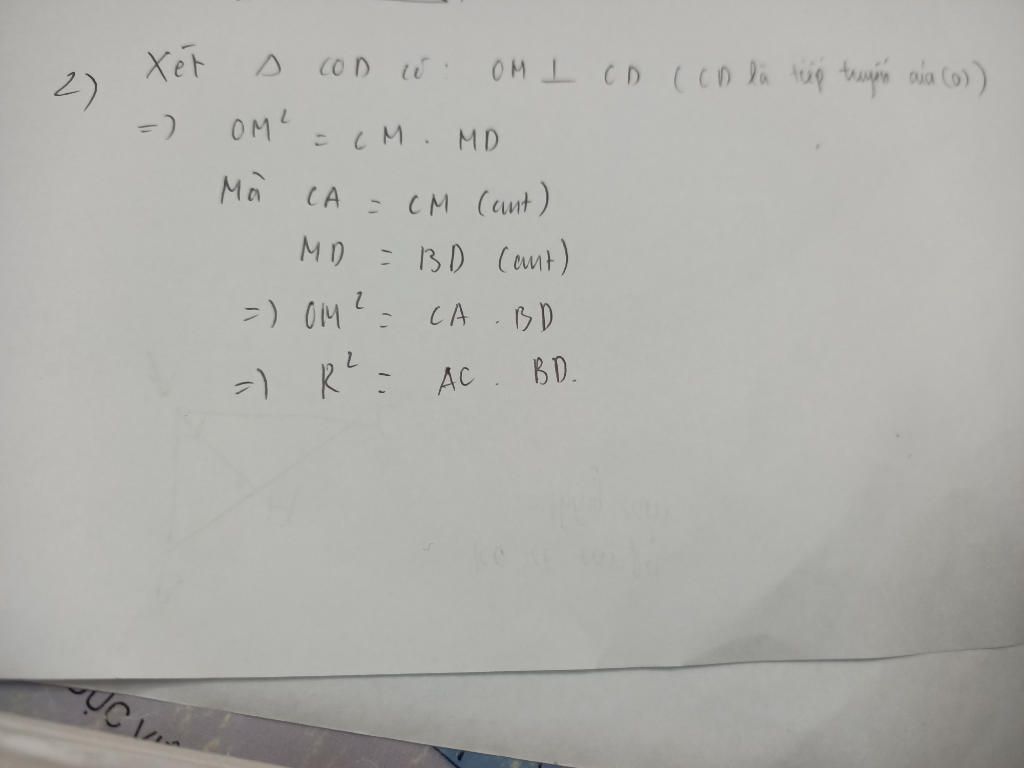 2) Xét Δ COD có: OM ⊥ CD (CD là tiếp tuyến của (O))
=) OM² = CM . MD
Mà CA = CM (cmt)
MD = BD (cmt)
=) OM² = CA . BD
=) R² = AC . BD.
ỤC